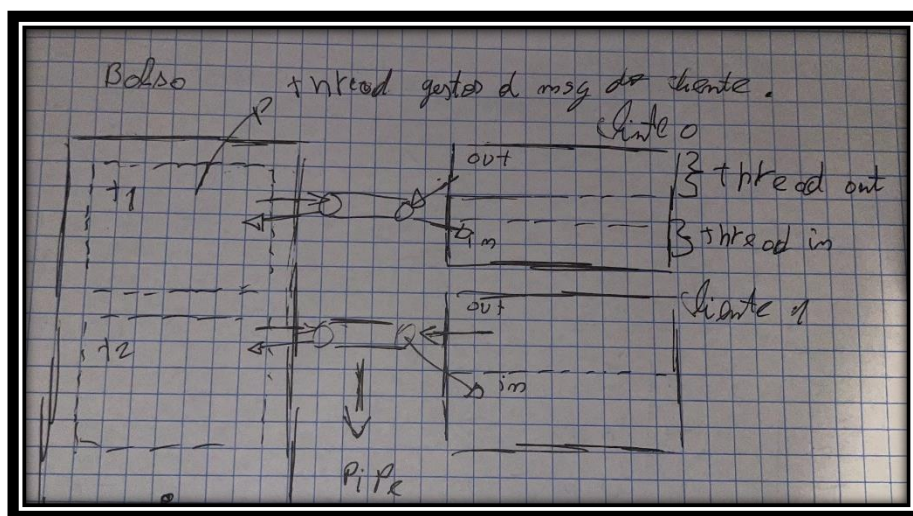 Bolso
thread gestor d msg de cliente.
cliente 0
out
} thread out
t1
in
} thread in
out
cliente 1
t2
in
PiPe